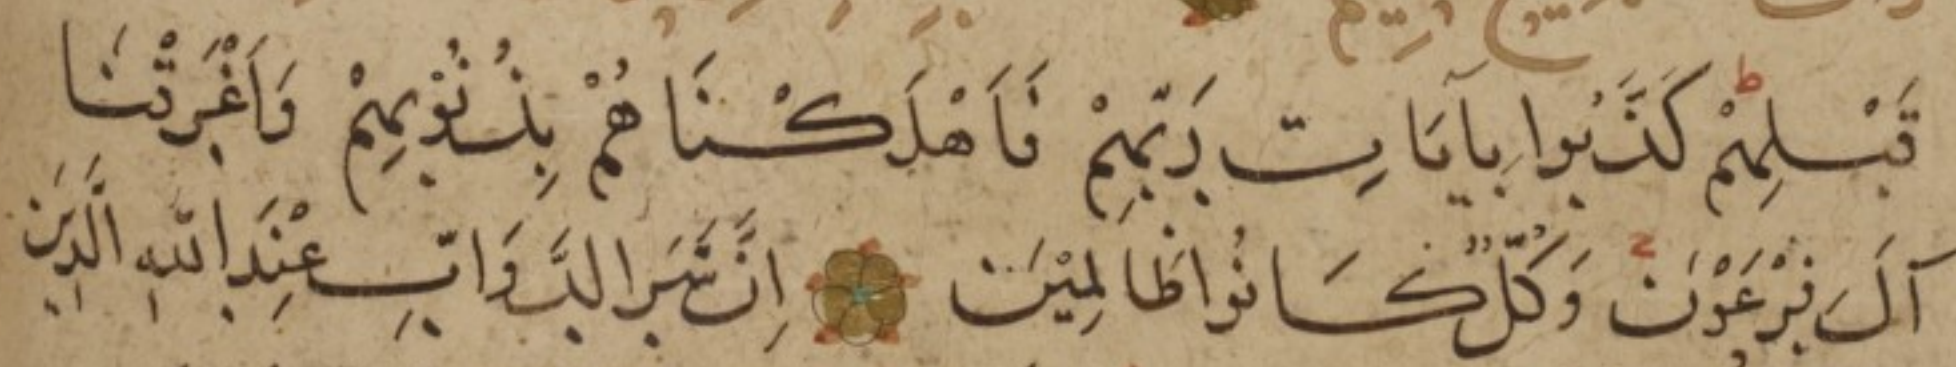 قَبْلِهِمْ كَذَّبُوا بِآيَاتِ رَبِّهِمْ فَاَهْلَكْنَاهُمْ بِذُنُوْبِهِمْ وَاَغْرَقْنَا
آلَ فِرْعَوْنَ وَكُلٌّ كَانُوا ظَالِمِيْنَ اِنَّ شَرَّ الدَّوَابِّ عِنْدَ اللّٰهِ الَّذِيْنَ